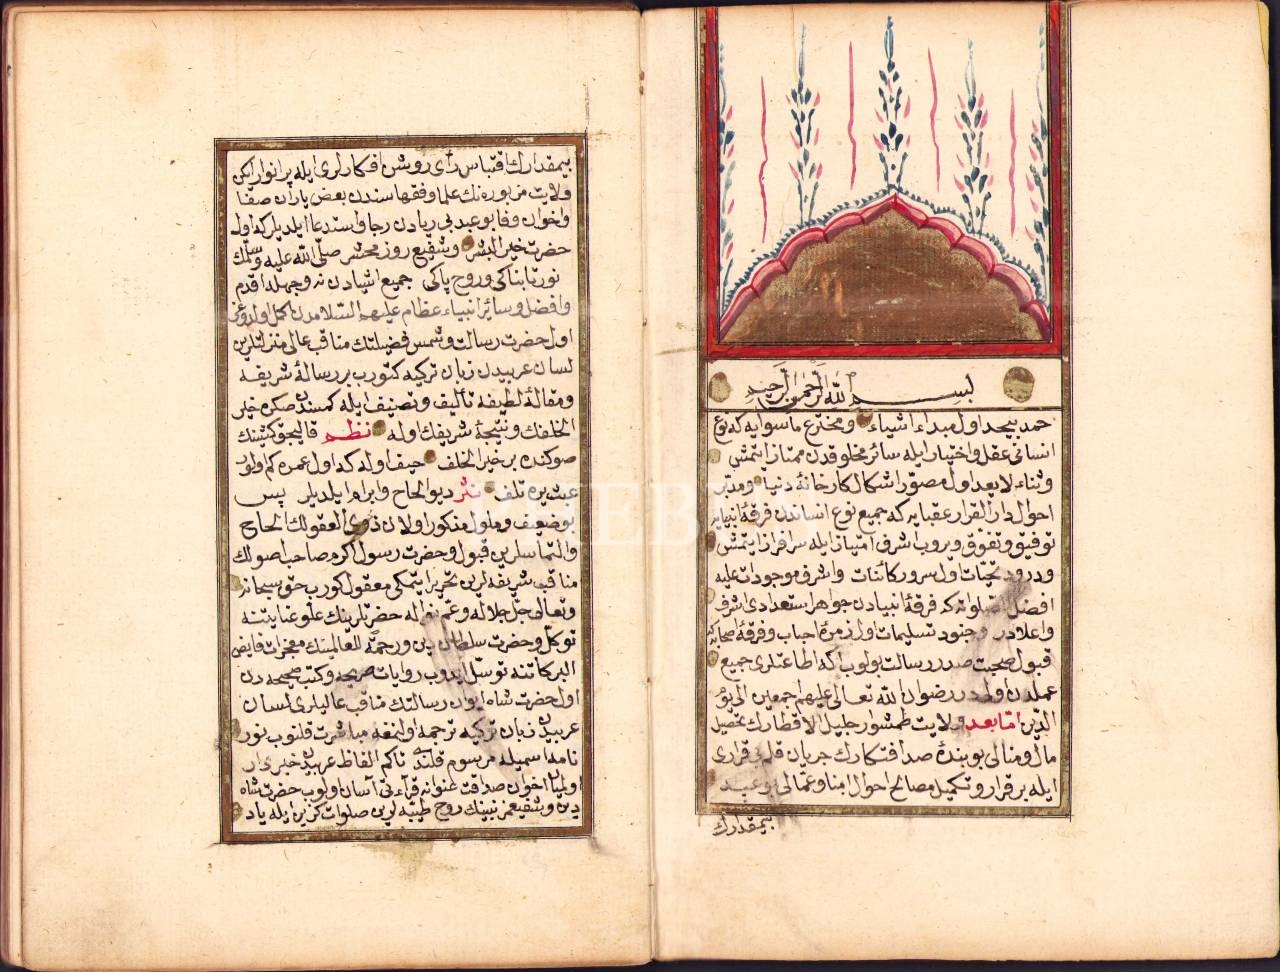 بسم الله الرحمن الرحيم
حمد بيحد اول مبداء اشياء و مخترع ماسوايه كه نوع
انسانى عقل و اختيار ايله سائر مخلوقدن ممتاز ايتمش
وثناء لا يعد اول مصور اشكال كارخانهٔ دنيا و مدبر
احوال دار القرار عقبايه كه جميع نوع انساندن فرقهٔ انبيايه
توفيق و تفوق ويروب اشرف امتياز ايله سرافراز ايتمش
ودرود تحيات اول سرور كائنات و اشرف موجودات عليه
افضل الصلواته كه فرقهٔ انبيادن جواهر استعدادى اشرف
واعلادر وجنود تسليمات اول زمرهٔ احباب و فرقهٔ اصحابه كه
قبول صحبت صدر رسالت بولوب كه اطاعتلرى جميع
عملدن اولى در رضوان الله تعالى عليهم اجمعين الى يوم
الدين اما بعد ولايت طمشوار جليل الاقطارك تحصيل
مال و منالى بو بندهٔ صداقتكارك جريان قلم بى قرارى
ايله برقرار و تكميل مصالح احوال ابنا و عمالى بو عبد
بيمقدارك
بيمقدارك اقتباس رأى روشن افكارلرى ايله پر انوار ايكن
ولايت مزبوره نك علما و فقهاسندن بعض ياران صفا
واخوان وفا بو عبد بى ريادن رجا و استدعا ايلديلر كه اول
حضرت خير البشر وشفيع روز محشر صلى الله عليه وسلمك
نور تابناكى و روح پاكى جميع اشيادن نه وجهله اقدم
وافضل و سائر انبياء عظام عليهم السلامدن اكمل اولدوغن
اول حضرت رسالت و شمس فضيلتك مناقب عالى منزلتلرين
لسان عربيدن زبان تركيه كتورب بر رسالهٔ شريفه
ومقالهٔ لطيفه تأليف و تصنيف ايله كمسندن صكره خير
الخلفك و نتيجهٔ شريفك اوله نظم قاليجق كشينك
صوكنده بر خير الخلف حيف اوله كه اول عمره كم اولور
عبث يره تلف نثر ديو الحاح و ابرام ايلديلر پس
بو ضعيف و ملول مذكور اولان ذوى العقولك الحاح
والتماسلرين قبول و حضرت رسول اكرم صاحب اصولك
مناقب شريفه لرين تحرير ايتمكى معقول كورب حق سبحانه
وتعالى جل جلاله وعم نواله حضرتلرينك علو عنايتنه
توكل و حضرت سلطان دين و رحمة للعالمينك معجزات فايض
البركاتنه توسل ايدوب روايات صريحه و كتب صحيحه دن
اول حضرت شاه ايوان رسالتك مناقب عاليلرى لسان
عربيدن زبان تركيه ترجمه اولنمغه مباشرت قلنوب نور
نامه اسميله مرسوم قلندى تا كم الفاظ عربيدن خبردار
اولميان اخوان صداقت عنوانه قرآءتى آسان اولوب حضرت شاه
دين و شفيعمز نبينك روح طيبه لرين صلوات كزين ايله ياد
PHEBUS